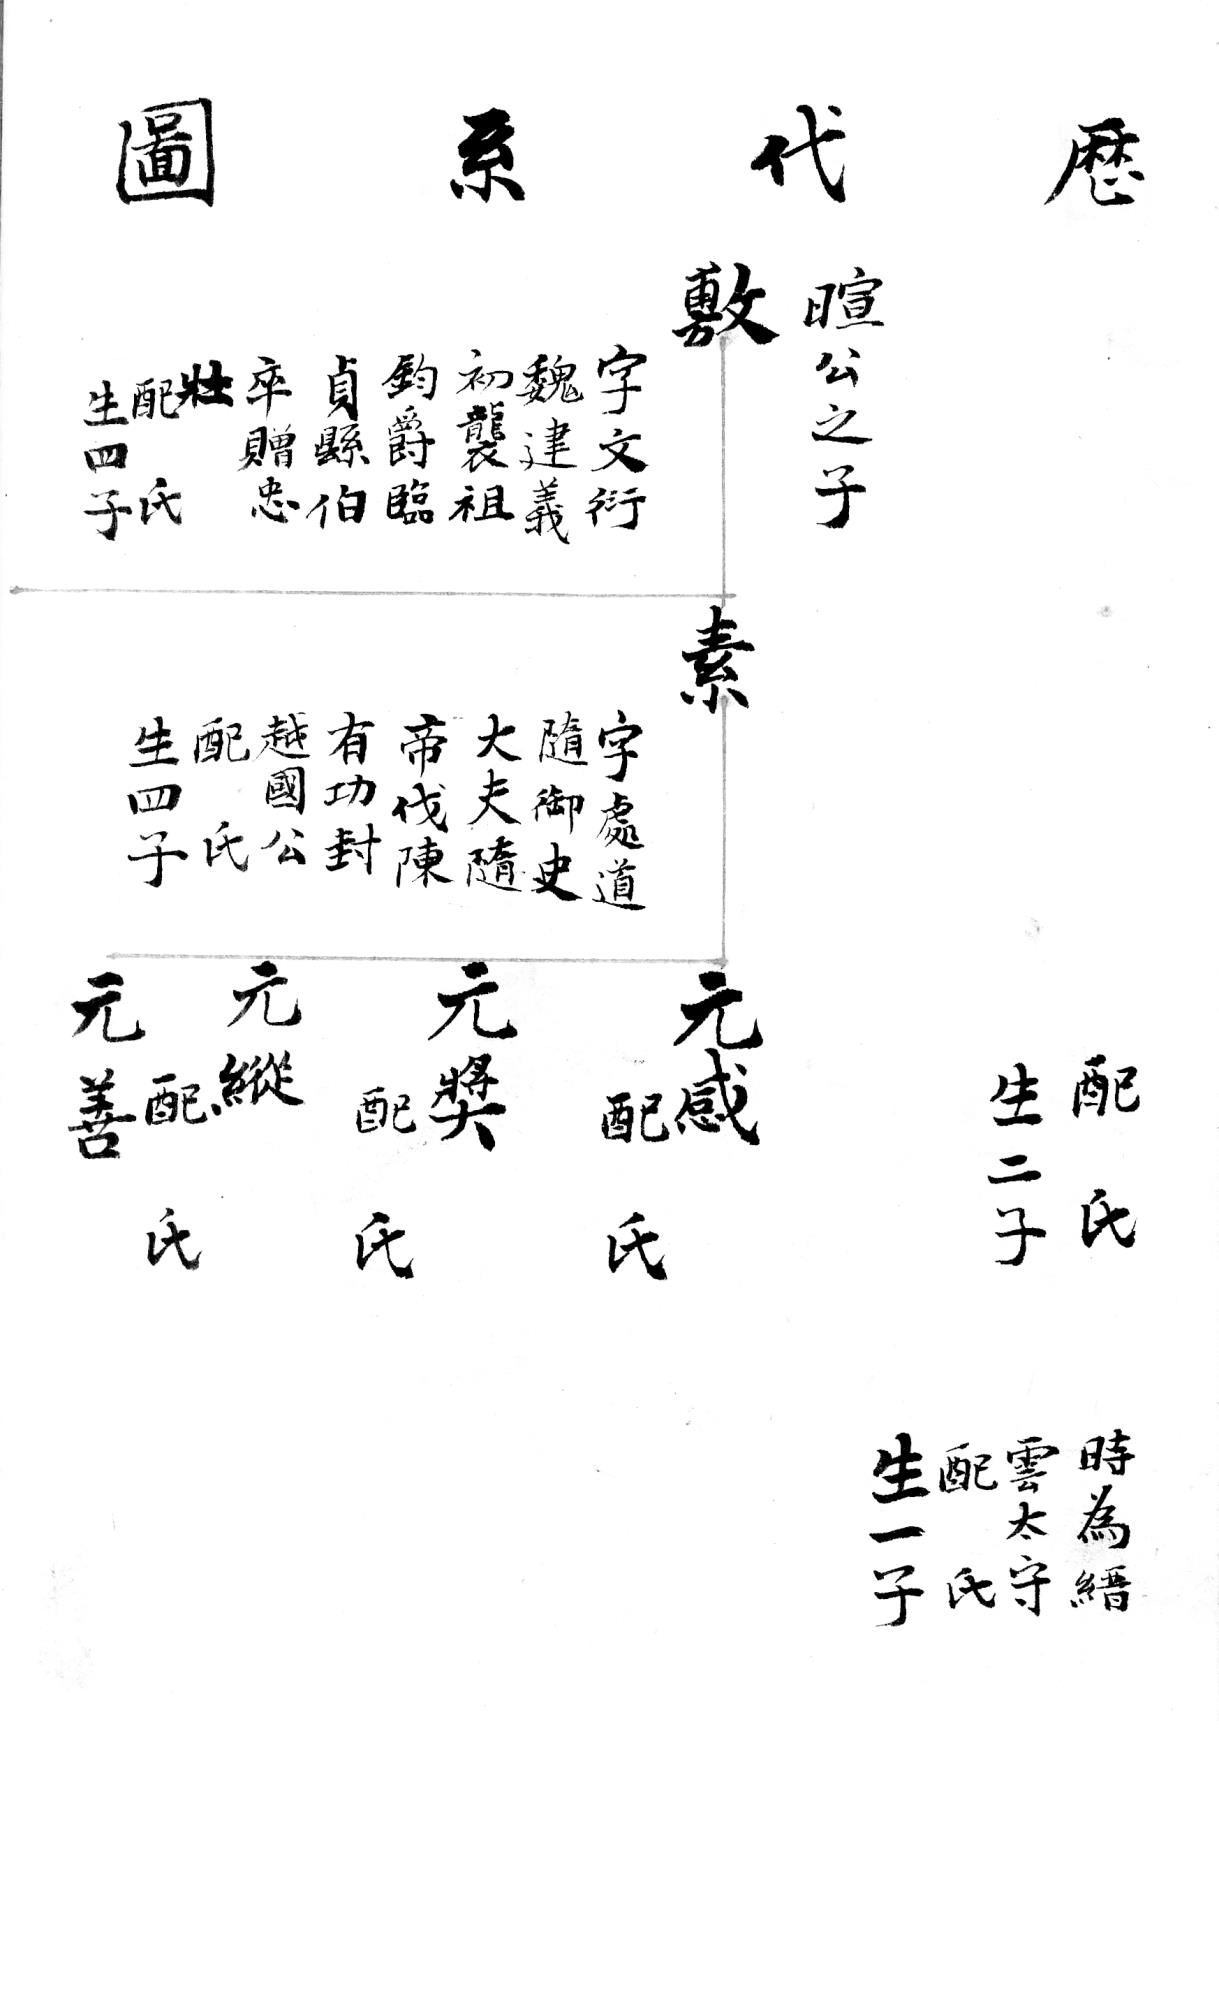 歷代系圖
配氏
生二子
時為縉
雲太守
配氏
生一子
暄公之子
敷
字文衍
魏建義
初襲祖
鈞爵臨
貞縣伯
卒贈忠
壯
配氏
生四子
素
字處道
隨御史
大夫隨
帝伐陳
有功封
越國公
配氏
生四子
元感
配氏
元獎
配氏
元縱
配氏
元善